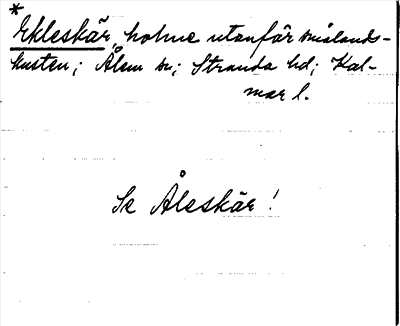 *
Ekleskär holme utanför smålands-
kusten; Ålem sn; Stranda hd; Kal-
mar l.
Se Åleskär!